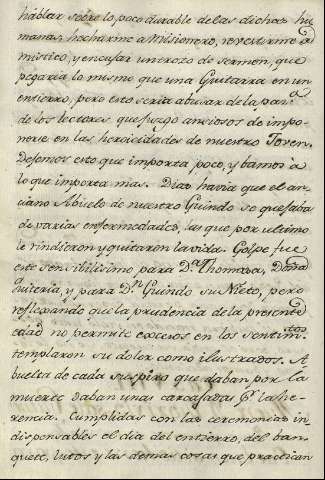 hablar sobre lo poco durable de las dichas hu
manas, hecharme a Misionero, revestirme a
mistico, y encajar un trozo de sermon, que
pegaria lo mismo que una Guitarra en un
entierro, pero esto seria abusar de la pana.
de los lectores que juzgo ansiosos de impo-
nerse en las heroicidades de nuestro Joven.
Dejemos esto que importa poco, y bamos à
lo que importa mas. Dias havia que el an-
ciano Abuelo de nuestro Guindo se quejaba
de varias enfermedades, las que por ultimo
le rindieron y quitaron la vida. Golpe fue
este sensibilisimo para D.a Thomasa,
y para D.n Guindo su Nieto, pero
reflexando que la prudencia de la presente
edad no permite excesos en los sentim.tos
templaron su dolor como ilustrados. A
buelta de cada suspiro que daban por la
muerte daban unas carcajadas P.r la he-
rencia. Cumplidas con las ceremonias in-
dispensables el dia del entierro, del ban-
quete, lutos y las demas cosas que practican